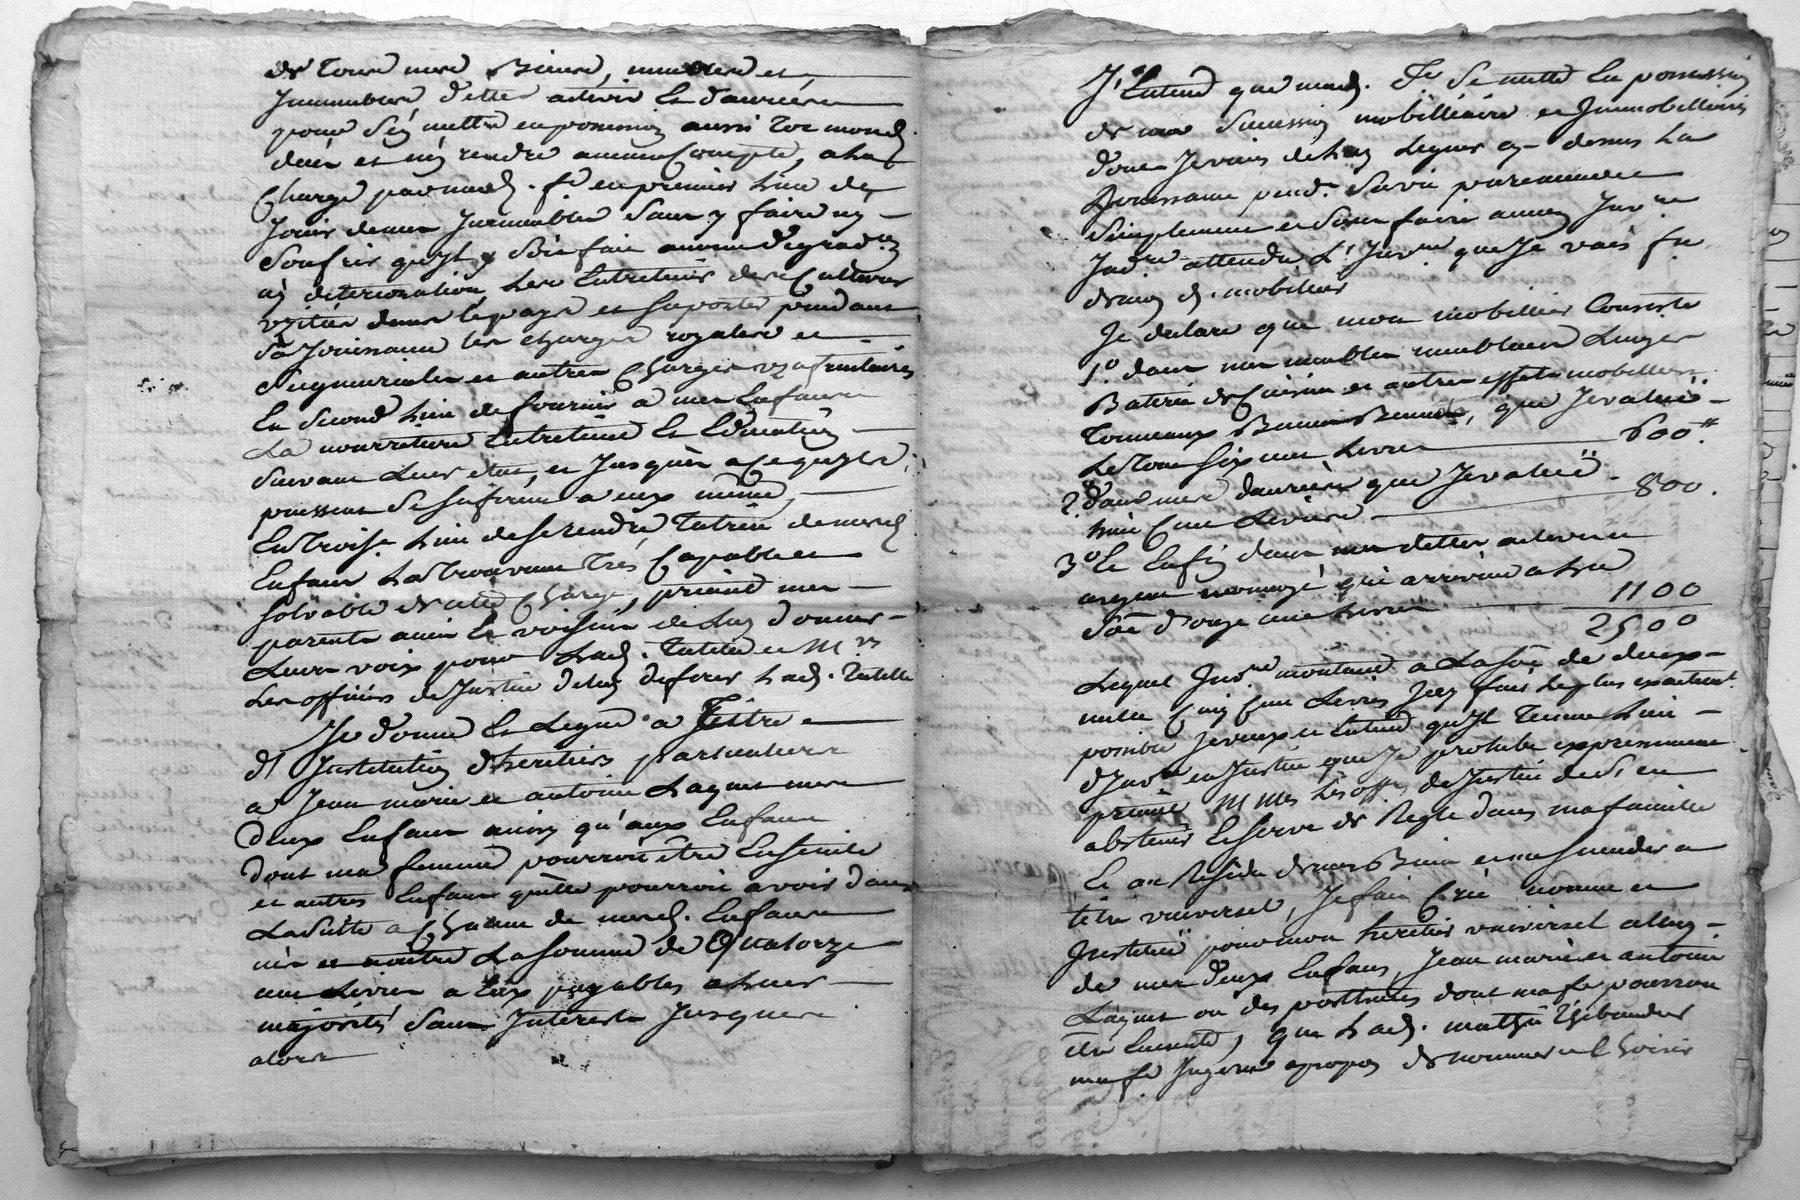 de tous mes Biens, meubles et
Immeubles, dettes actives et danrées
pour s'en mettre en possession aussi tot mon d.
deces et n'en rendre aucun Compte, a la
Charge par mad. fe en premier lieu de
Jouir de mes Immeubles sans y faire ny
soufrir qu'il y soit fait aucune degradon
ny deterioration, les entretenir des Cultures
uzitées dans le pays et suporter pendant
sa Jouissance les charges royales et
seigneuriales et autres Charges uzufruitaires
En second lieu de fournir a mes Enfans
La nourriture Entretient et Education
suivant leur etat, et Jusques a ce qu'ils
puissent se sufire a eux même,
En troise lieu de se rendre Tutrice de mesd.
Enfans la trouvant très Capable et
solvable de cette Charge, priant mes
parents amis et voisins de luy donner
Leurs voix pour lad. Tutelle et Mrs
Les officiers de Justice de luy deferer lad. Tutelle
Je donne et Legue a Tittre
d'Institution d'heritiers particuliers
a Jean marie et antoine Laques mes
deux Enfans ainsy qu'aux Enfans
dont ma femme pourroit être Enseinte
et autres Enfans qu'elle pourroit avoir dans
La suitte a Chacun de mesd. Enfans
nés et a naître La somme de Quatorze
cent Livres a Eux payables a leur
majorité sans Interests Jusques
alors
J'Entend que mad. Fe se mette En possession
de ma succession mobilliaire et Immobilliaire
dont Je viens de luy Leguer cy-dessus La
Jouissance pendt sa vie purement et
simplement et sans faire aucun Invre
Judre attendu L'Invre que Je vais fre
de mon d. mobilier
Je declare que mon mobillier Consiste
1.° dans mes meubles meublans Linges
Baterie de Cuisine et autres effets mobilliers
Tonneaux, que J'evaluë
Le tout six cent Livres 600#.
2.° dans mes danrées que J'evaluë
huit Cent Livres 800.
3.° Et Enfin dans mes dettes actives et
argent monnoyé qui arrivent a la
soe d'onze cent Livres 1100
2500
Lequel Invre montant a La soe de deux
mille Cinq Cent Livres J'ay fais le plus exactemt
possible Je veux et Entend qu'il Tienne Lieu
d'Invre en Justice que Je prohibe expressement
priant MMes Les offrs de Justice de s'en
abstenir Et serve de Regle dans ma famille
Et au Residu de mes Biens et ma succession
être universel, Je fais Crée nomme et
Instituë pour mon heritier universel celuy
de mes deux Enfans, Jean marie et antoine
Laques ou des posthumes dont ma fe pourroit
être Enceinte, que lad. Thibaudier
ma fe Jugera apropos de nommer et Choisir